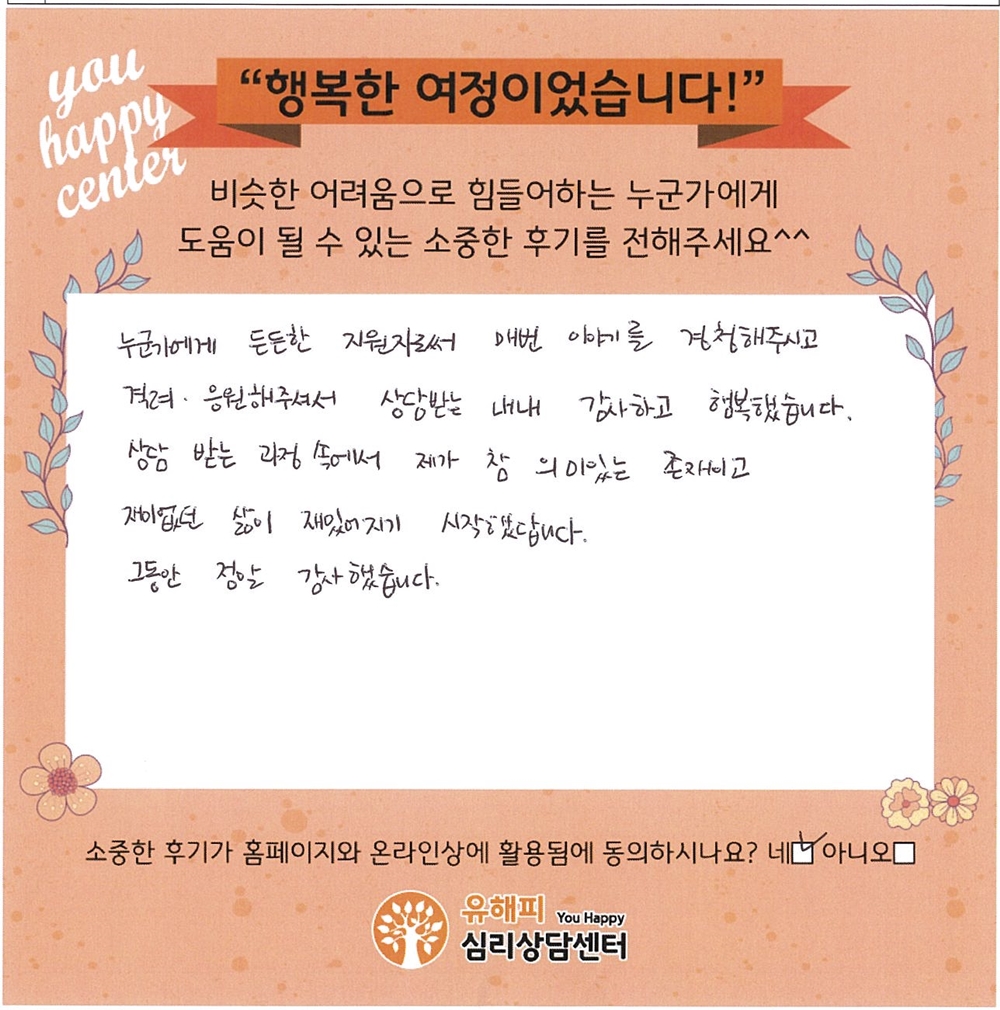 you
happy
center
“행복한 여정이었습니다!”
비슷한 어려움으로 힘들어하는 누군가에게
도움이 될 수 있는 소중한 후기를 전해주세요^^
누군가에게 든든한 지원자로써 매번 이야기를 경청해주시고
격려·응원해주셔서 상담받는 내내 감사하고 행복했습니다.
상담 받는 과정 속에서 제가 참 의미있는 존재이고
재미없던 삶이 재밌어지기 시작했답니다.
그동안 정말 감사했습니다.
소중한 후기가 홈페이지와 온라인상에 활용됨에 동의하시나요? 네 아니오
유해피 You Happy
심리상담센터